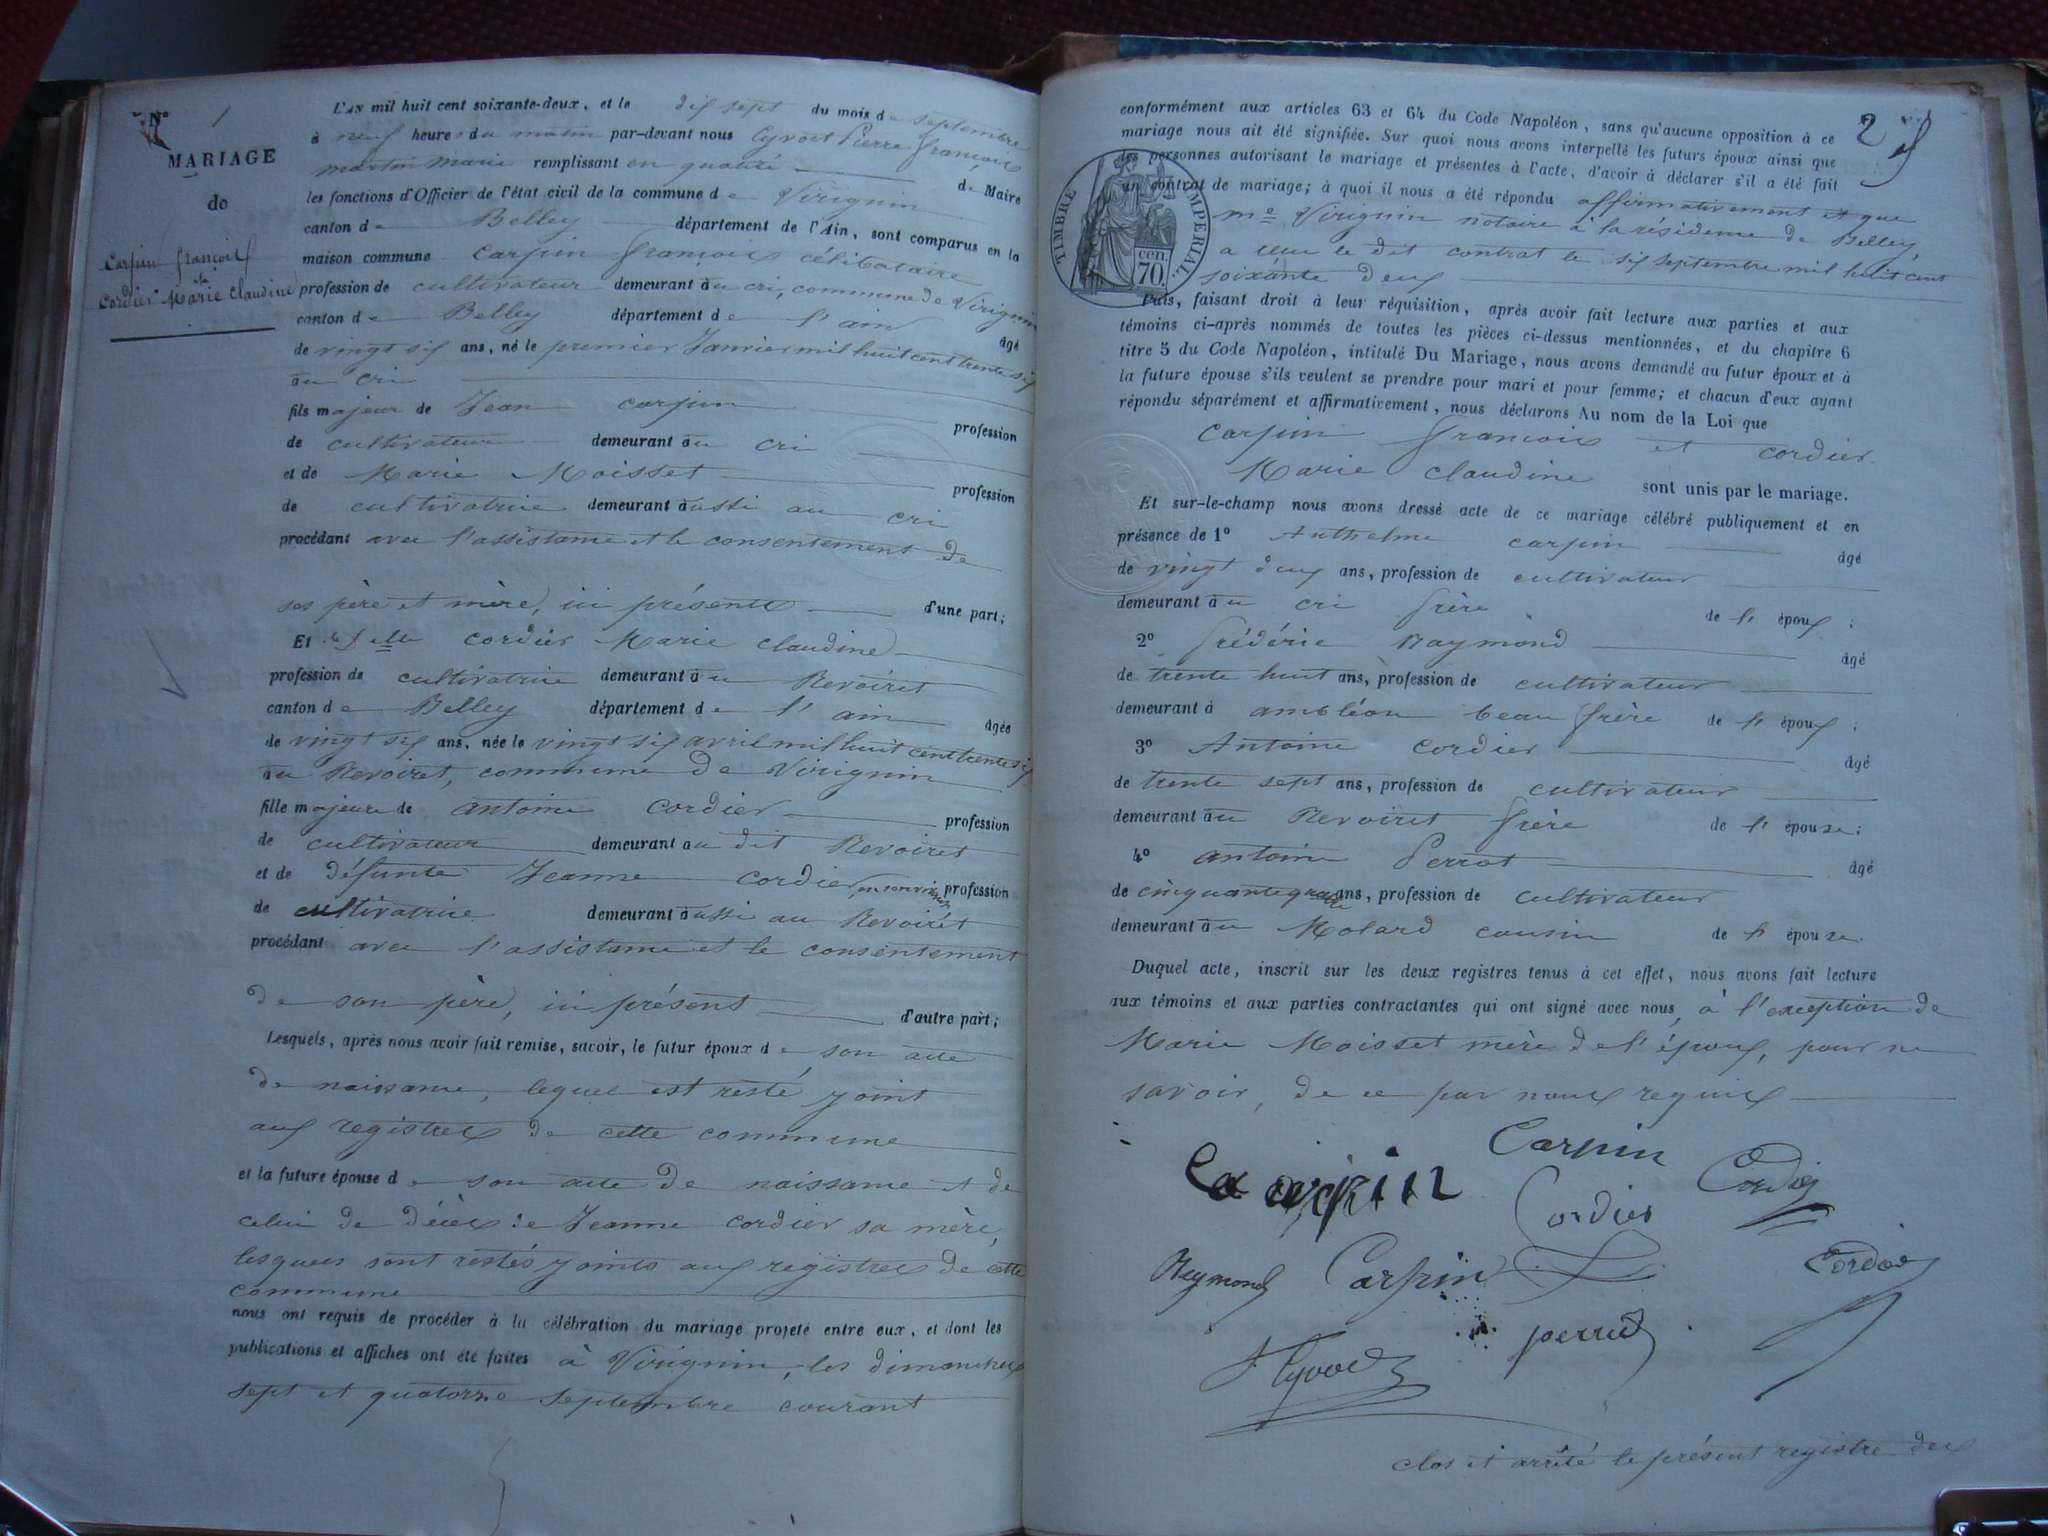 N° 1
MARIAGE
de
Carpin françois
et
Cordier Marie Claudine
L'AN mil huit cent soixante-deux, et le dix sept du mois de septembre
à neuf heures du matin par-devant nous Cyvoct Pierre françois
martin marie remplissant en qualité de Maire
les fonctions d'Officier de l'état civil de la commune de Virignin
canton de Belley département de l'Ain, sont comparus en la
maison commune Carpin françois célibataire
profession de cultivateur demeurant au cri, commune de Virignin
canton de Belley département de l'ain âgé
de vingt six ans, né le premier Janvier mil huit cent trente six
au cri
fils majeur de Jean carpin profession
de cultivateur demeurant au cri
et de Marie Moisset profession
de cultivatrice demeurant aussi au cri
procédant avec l'assistance et le consentement de
ses père et mère, ici présents d'une part;
Et Delle cordier Marie claudine
profession de cultivatrice demeurant au Revoiret
canton de Belley département de l'ain âgée
de vingt six ans, née le vingt six avril mil huit cent trente six
au Revoiret, commune de Virignin
fille majeure de antoine cordier profession
de cultivateur demeurant au dit Revoiret
et de défunte Jeanne cordier, en son vivant profession
de cultivatrice demeurant aussi au Revoiret
procédant avec l'assistance et le consentement
de son père, ici présent d'autre part;
Lesquels, après nous avoir fait remise, savoir, le futur époux de son acte
de naissance, lequel est resté joint
aux registres de cette commune
et la future épouse de son acte de naissance et de
celui de décès de Jeanne cordier sa mère,
lesquels sont restés joints aux registres de cette
commune
nous ont requis de procéder à la célébration du mariage projeté entre eux, et dont les
publications et affiches ont été faites à Virignin, les dimanches
sept et quatorze septembre courant
2
conformément aux articles 63 et 64 du Code Napoléon, sans qu'aucune opposition à ce
mariage nous ait été signifiée. Sur quoi nous avons interpellé les futurs époux ainsi que
les personnes autorisant le mariage et présentes à l'acte, d'avoir à déclarer s'il a été fait
un contrat de mariage; à quoi il nous a été répondu affirmativement et que
me Virignin notaire à la résidence de Belley,
a reçu le dit contrat le six septembre mil huit cent
soixante deux
TIMBRE IMPÉRIAL
70 cen.
Puis, faisant droit à leur réquisition, après avoir fait lecture aux parties et aux
témoins ci-après nommés de toutes les pièces ci-dessus mentionnées, et du chapitre 6
titre 5 du Code Napoléon, intitulé Du Mariage, nous avons demandé au futur époux et à
la future épouse s'ils veulent se prendre pour mari et pour femme; et chacun d'eux ayant
répondu séparément et affirmativement, nous déclarons Au nom de la Loi que
Carpin francois et cordier
Marie claudine sont unis par le mariage.
Et sur-le-champ nous avons dressé acte de ce mariage célébré publiquement et en
présence de 1° Anthelme carpin âgé
de vingt deux ans, profession de cultivateur
demeurant au cri frère de l'époux;
2° frédéric Raymond âgé
de trente huit ans, profession de cultivateur
demeurant à ambléon beau frère de l'époux;
3° Antoine cordier âgé
de trente sept ans, profession de cultivateur
demeurant au Revoiret frère de l'épouse;
4° antoine Perrot âgé
de cinquante quatre ans, profession de cultivateur
demeurant au Molard cousin de l'épouse.
Duquel acte, inscrit sur les deux registres tenus à cet effet, nous avons fait lecture
aux témoins et aux parties contractantes qui ont signé avec nous, à l'exception de
Marie Moisset mère de l'époux, pour ne
savoir, de ce par nous requis
Carpin
Carpin
Cordier
Cordier
Reymond
Carpin
Cordier
perrot
Cyvoct
clos et arrêté le présent registre des